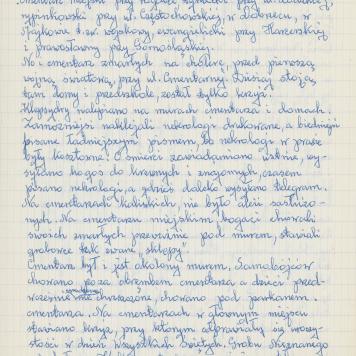 Cmentarz miejski przy
rypinkowski przy ul. Częstochowskiej, w dobrzecu, w
Majkowie t.zw. wojskowy, ewangielicki przy Harcerskiej
i prawosławny przy Górnośląskiej.
No i cmentarz zmarłych na cholerę, przed pierwszą
wojną światową, przy ul. Cmentarnej. Dzisiaj stoją
tam domy i przedszkole, został tylko krzyż.
Klepsydry nalepiano na murach cmentarza i domach.
Zamożniejsi naklejali nekrologi drukowane, a biedniejsi
pisane ładniejszym pismem, bo nekrologi w prasie
były kosztowne. O śmierci zawiadamiano ustnie, wy-
syłano kogoś do krewnych i znajomych, czasem
pisano nekrologi, a gdzieś daleko wysyłano telegram.
Na cmentarzach kaliskich, nie było alei zasłużo-
nych. Na cmentarzu miejskim bogaci chowali
swoich zmarłych przeważnie pod murem, stawiali
grobowce tak zwane „sklepy".
Cmentarz był i jest okolony murem. Samobójców
chowano poza obrębem cmentarza a dzieci przed-
wcześnie nie chrzczone, chowano pod parkanem
cmentarza. Na cmentarzach w głównym miejscu
stawiano krzyż, przy którym odprawiały się uroczy-
stości w dzień Wszystkich Świętych. Grobu Nieznanego